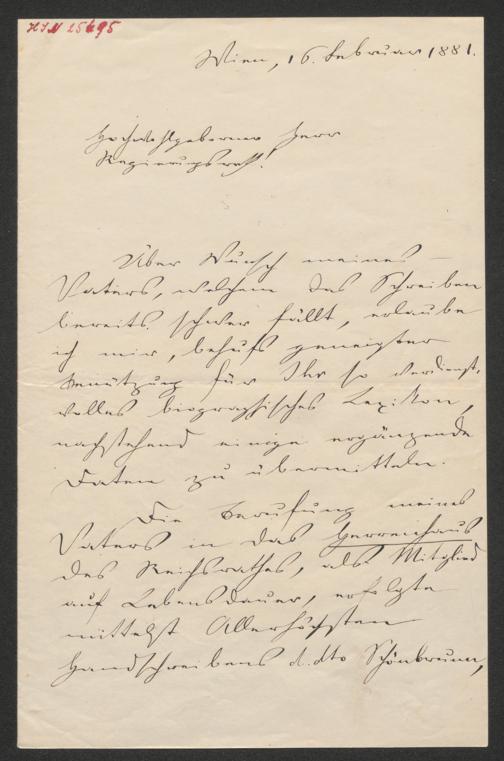 HIN 25695
Wien, 16. Februar 1881.
Hochwohlgeborner Herr
Regierungsrath!
Über Wunsch meines
Vaters, welchem das Schreiben
bereits schwer fällt, erlaube
ich mir, behufs geneigter
Benützung für Ihr so verdienst-
volles biographisches Lexikon,
nachstehend einige ergänzende
Daten zu übermitteln.
Die Berufung meines
Vaters in das Herrenhaus
des Reichsrathes, als Mitglied
auf Lebensdauer, erfolgte
mittelst Allerhöchsten
Handschreibens d.dto Schönbrunn,